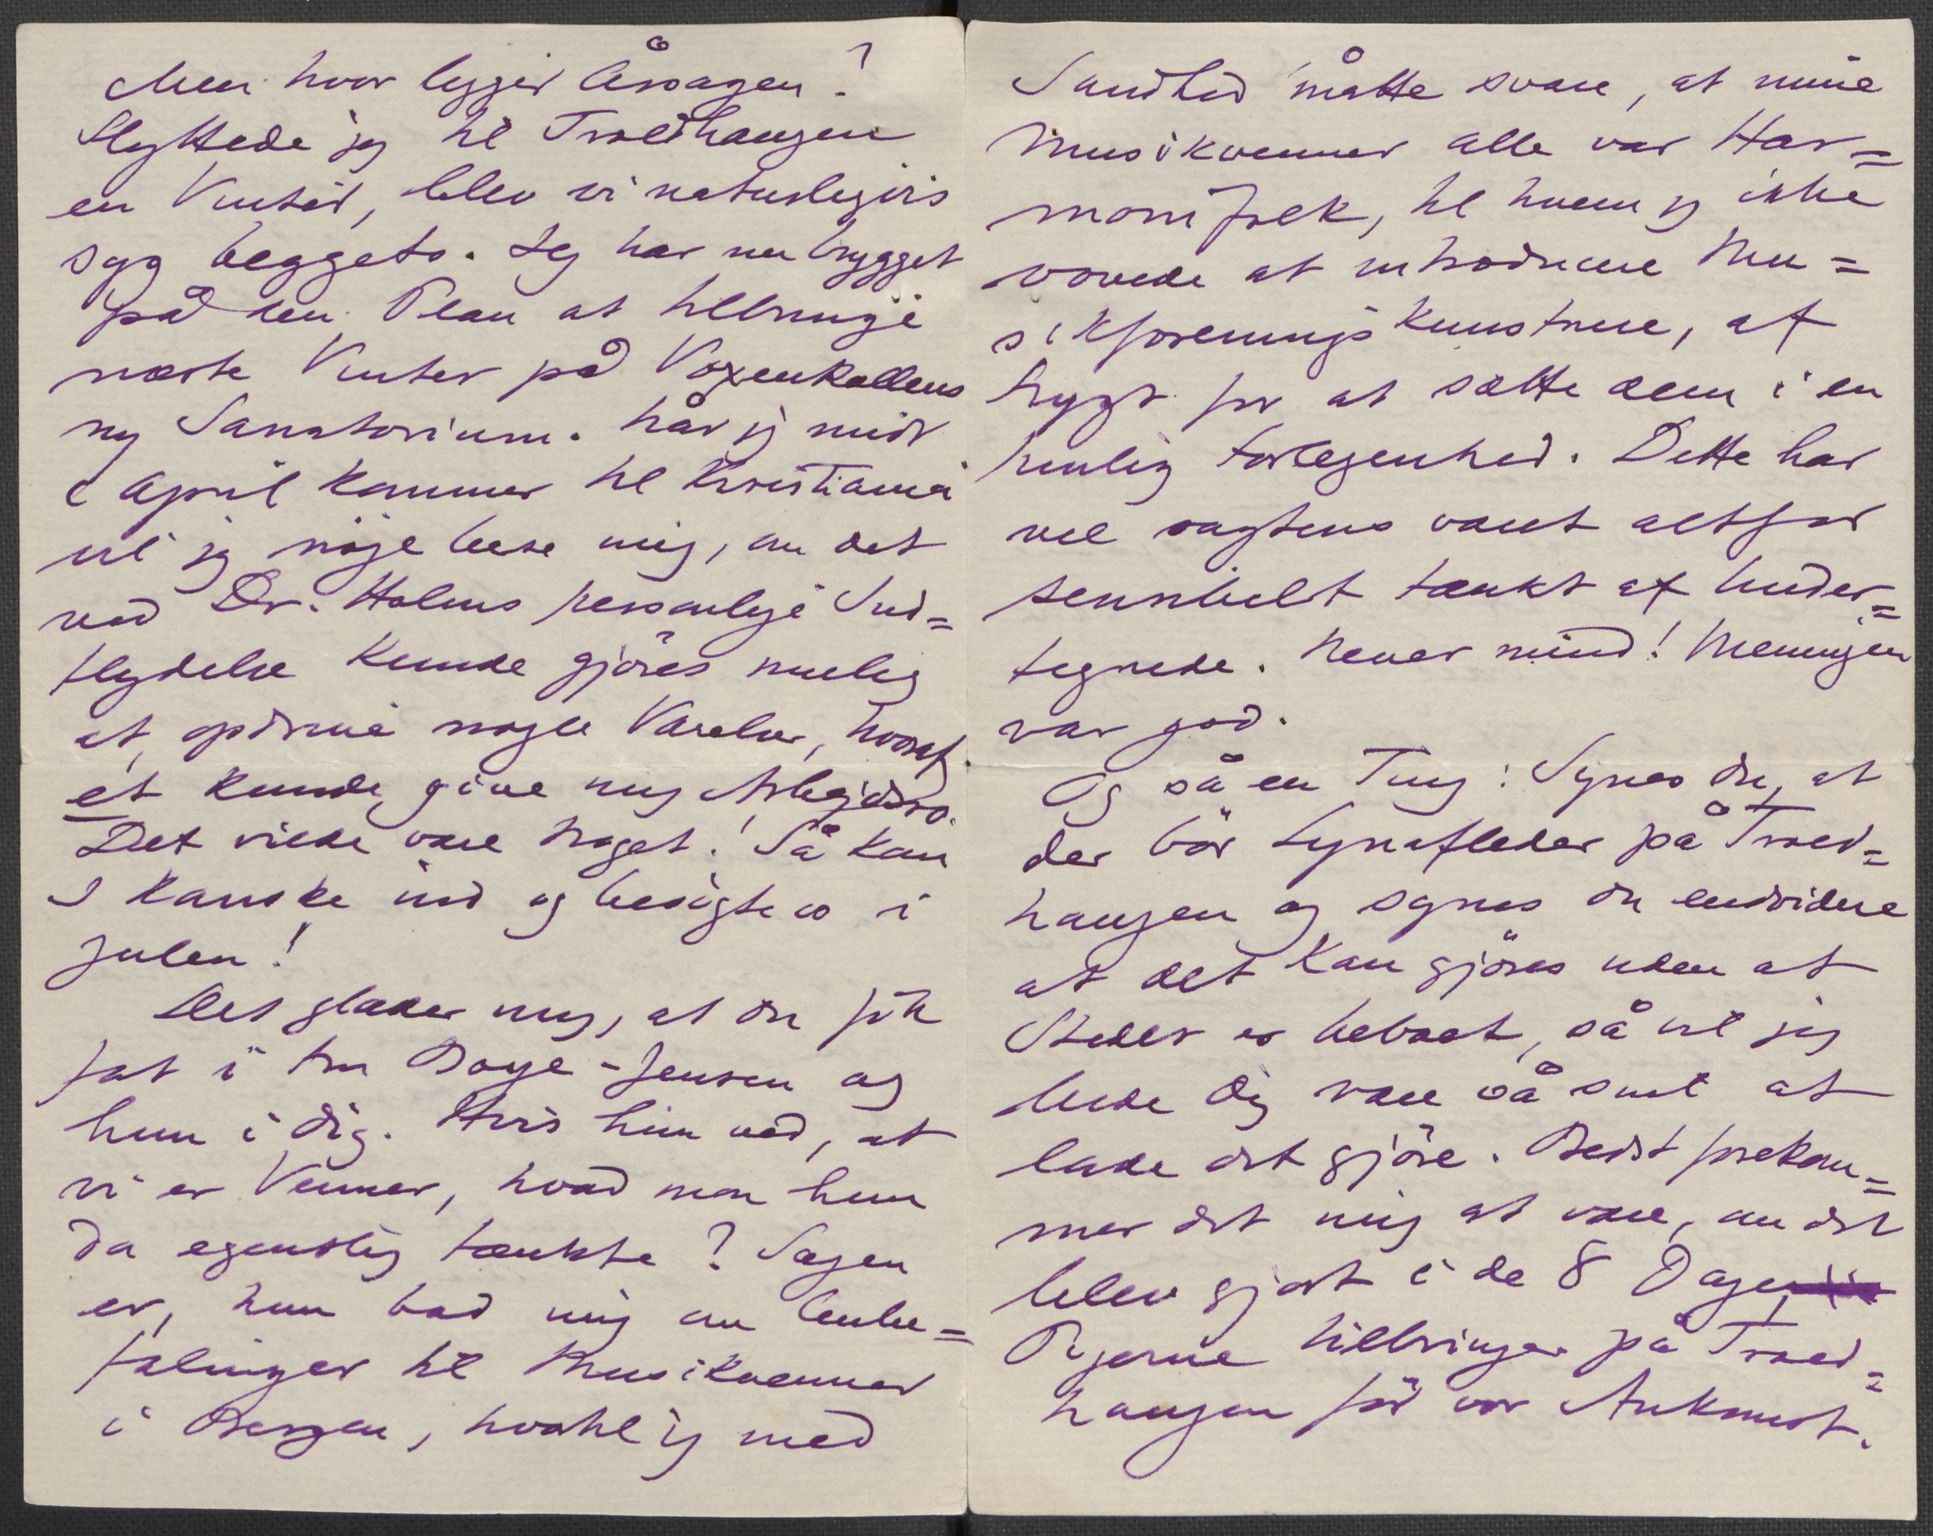 Men hvor ligger Årsagen?
Flyttede jeg til Troldhaugen
en Vinter, blev vi naturligvis
syg beggeto. Jeg har nu bygget
på den Plan at tilbringe
næste Vinter på Voxenkollens
ny Sanatorium. Når jeg midt
i April kommer til Kristiania
vil jeg nöje bese mig, om det
ved Dr. Holms personlige Ind=
flydelse kunde gjöres mulig
at opdrive nogle Værelser, hvoraf
et kunde give mig Arbejdsro.
Det vilde være Noget! Så kan
I kanske ind og besigte os i
Julen!
Det glæder mig, at du fik
fat i Fru Boye-Jensen og
hun i dig. Hvis hun ved, at
vi er Venner, hvad mon hun
da egentlig tænkte? Sagen
er, hun bad mig om Anbe=
falinger til Musikvenner
i Bergen, hvortil jeg med
Sandhed måtte svare, at mine
Musikvenner alle var Har=
monifolk, til hvem jeg ikke
vovede at introducere Mu=
sikforeningskunstnere, af
Frygt for at sætte dem i en
pinlig Forlegenhed. Dette har
vel sagtens været altfor
sensibelt tænkt af Under=
tegnede. Never mind! Meningen
var god.
Og så en Ting: Synes du, at
der bör Lynafleder på Trold=
haugen og synes du endvidere
at det kan gjöres uden at
Stedet er beboet, så vil jeg
bede dig være så snil at
lade det gjöre. Bedst forekom=
mer det mig at være, om det
blev gjort i de 8 Dage,
Pigerne tilbringer på Trold=
haugen för vor Ankomst.